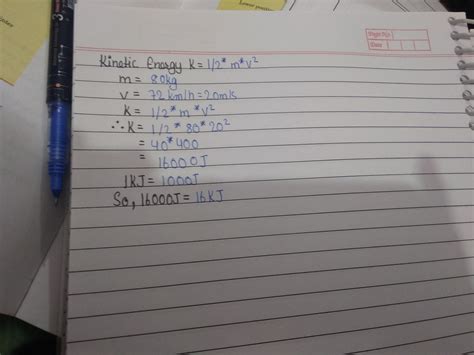 Lower position
Page No.
Date
Kinetic Energy K = 1/2* m*v²
m = 80kg
v = 72km/h = 20m/s
K = 1/2* m *v²
∴ K = 1/2* 80* 20²
= 40*400
= 16000J
1KJ = 1000J
So, 16000J = 16KJ